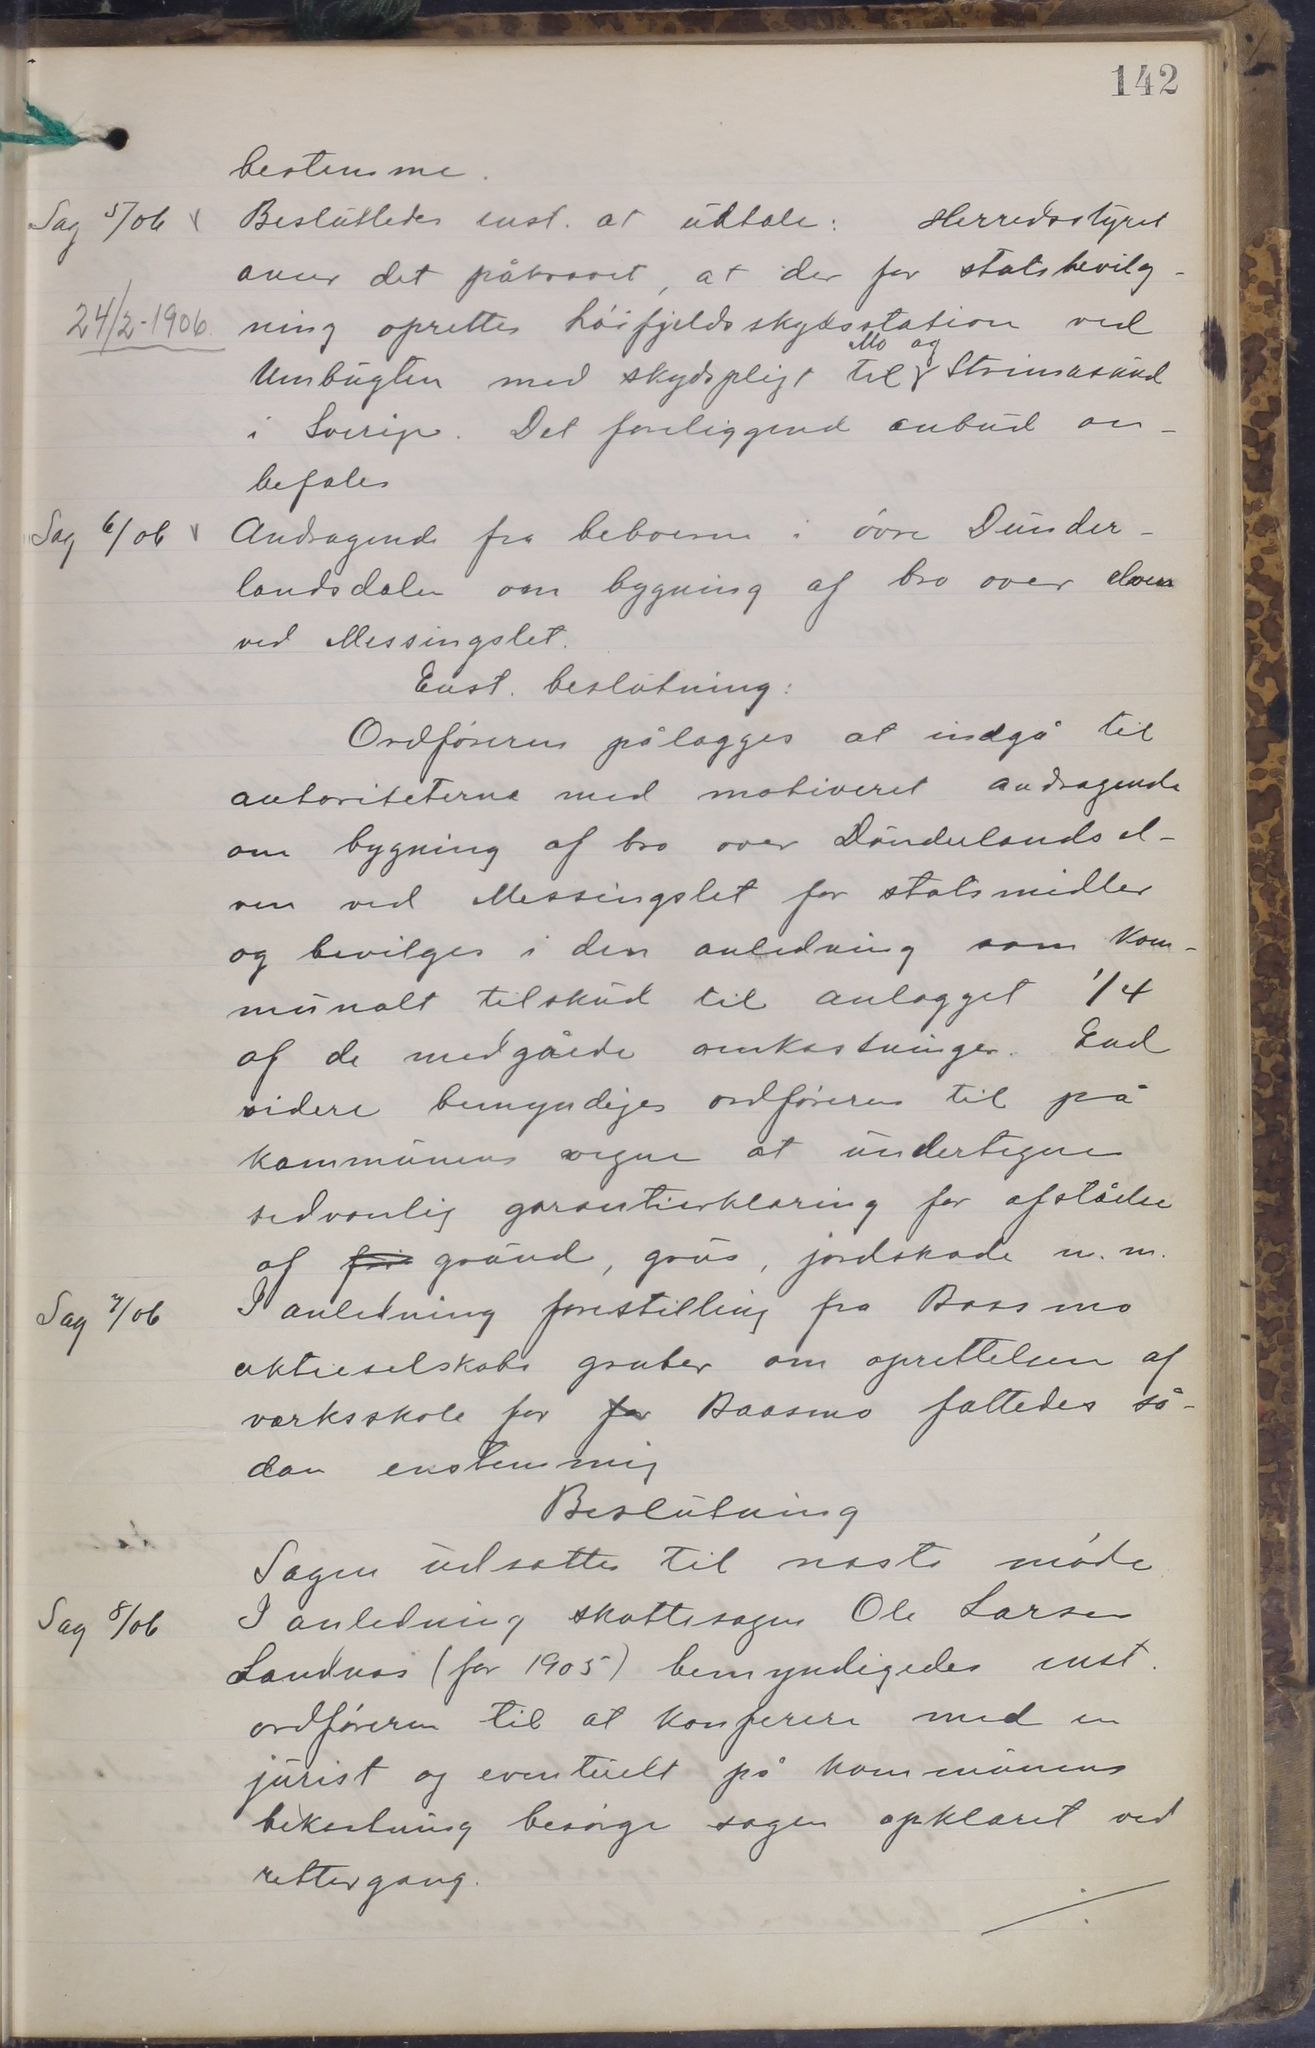 142
bestemme.
Sag 5/06 Besluttedes enst. at udtale: Herredsstyret
anser det påkrævet, at der for statsbevilg-
24/2-1906. ning oprettes høifjeldsskydsstation ved
Umbugten med skydspligt til Mo og Strimasund
i Sverige. Det foreliggende anbud an-
befales
Sag 6/06 Andragende fra beboerne i øvre Dunder-
landsdalen om bygning af bro over elven
ved Messingslet.
Enst. beslutning:
Ordføreren pålægges at indgå til
autoriteterne med motiveret andragende
om bygning af bro over Dunderlandsel-
ven ved Messingslet for statsmidler
og bevilges i den anledning som kom-
munalt tilskud til anlægget 1/4
af de medgåede omkostninger. End
videre bemyndiges ordføreren til på
kommunens vegne at undertegne
sedvanlig garantierklæring for afståelse
af fri grund, grus, jordskade m.m.
Sag 7/06 I anledning forestilling fra Baasmo
aktieselskabs gruber om oprettelsen af
værksskole for for Baasmo fattedes så-
dan enstemmig
Beslutning
Sagen udsættes til næste møde
Sag 8/06 I anledning skattesagen Ole Larsen
Sandnæs (for 1905) bemyndigedes enst.
ordføreren til at konferere med en
jurist og eventuelt på kommunens
bekostning besørge sagen opklaret ved
rettergang.
./.